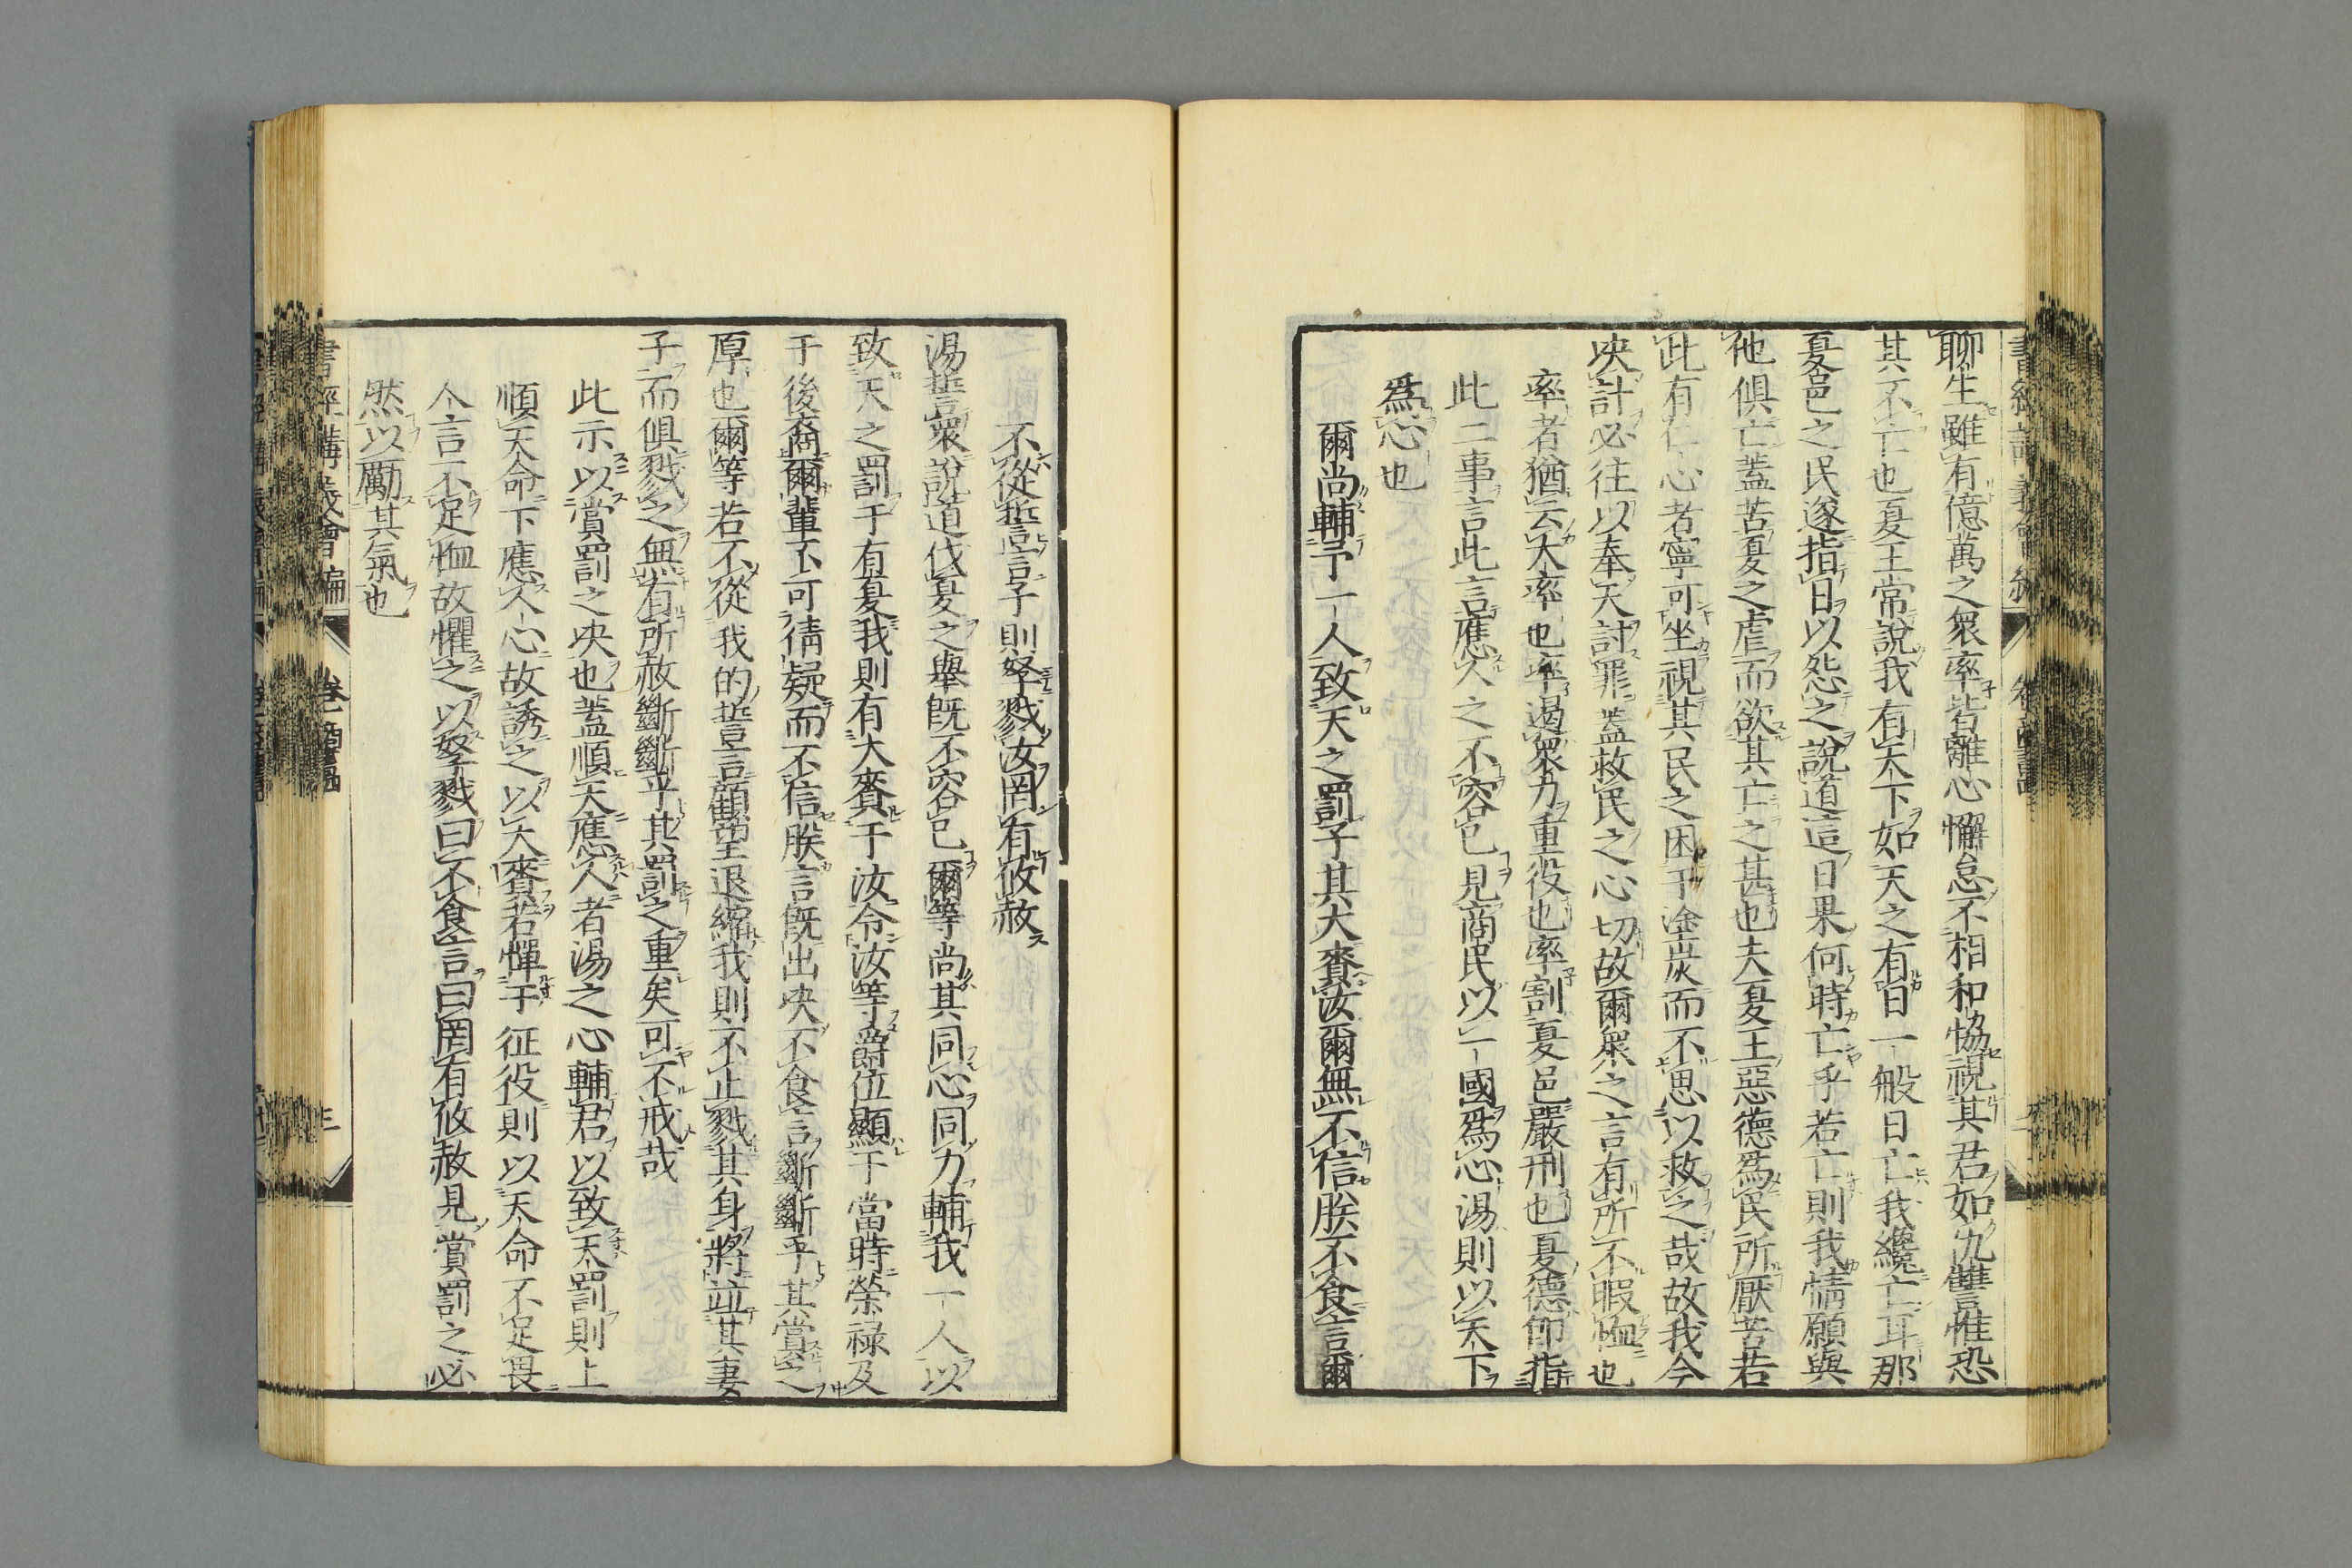 聊生雖有億萬之衆率皆離心懈怠不相和恊視其君如仇讐惟恐
其不亡也夏王常說我有天下如天之有日一般日亡我纔亡耳那
夏邑之民遂指日以怨之說道這日果何時亡乎若亡則我情願與
他俱亡蓋苦夏之虐而欲其亡之甚也夫夏王惡德爲民所厭苦若
此有仁心者寧可坐視其民之困于塗炭而不思以救之哉故我今
决計必往以奉天討罪蓋救民之心切故爾衆之言有所不暇恤也
率者猶云大率也率遏衆力重役也率割夏邑嚴刑也夏德卽指
此二事言此言應人之不容已見商民以一國爲心湯則以天下
爲心也
爾尚輔予一人致天之罰予其大賚汝爾無不信朕不食言爾
不從誓言予則孥戮汝罔有攸赦
湯誓衆說道伐夏之舉旣不容已爾等尚其同心同力輔我一人以
致天之罰于有夏我則有大賚于汝令汝等爵位顯于當時榮祿及
于後裔爾輩不可猜疑而不信朕言旣出决不食言斷斷乎其賞之
厚也爾等若不從我的誓言顧望退縮我則不止戮其身將竝其妻
子而俱戮之無有所赦斷斷乎其罰之重矣可不戒哉
此示以賞罰之决也蓋順天應人者湯之心輔君以致天罰則上
順天命下應人心故誘之以大賚若憚于征役則以天命不足畏
人言不足恤故懼之以孥戮曰不食言曰罔有攸赦見賞罰之必
然以勵其氣也
書經講義會編
卷
三